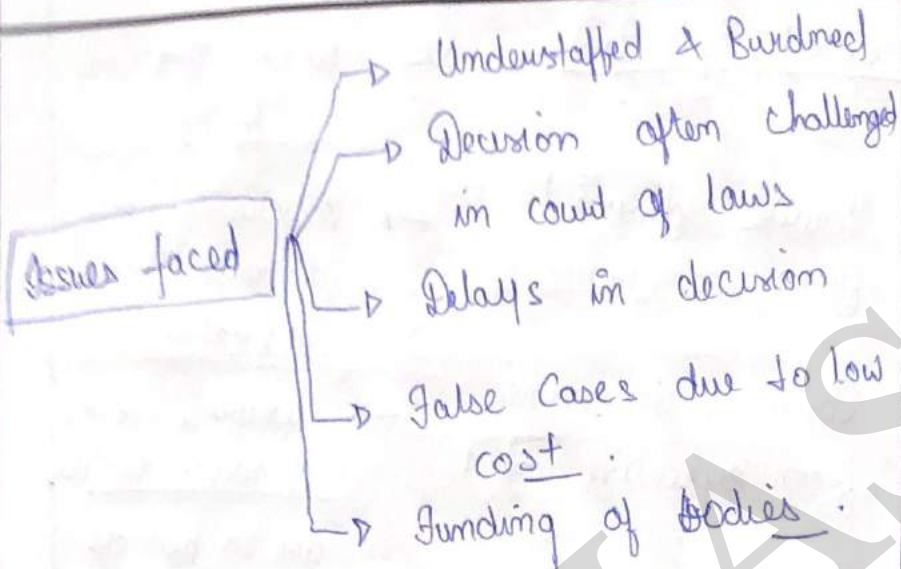 Issues faced
Understaffed & Burdned
Decision often challenged
in court of laws
Delays in decision
False Cases due to low
cost.
Funding of bodies.
IAS